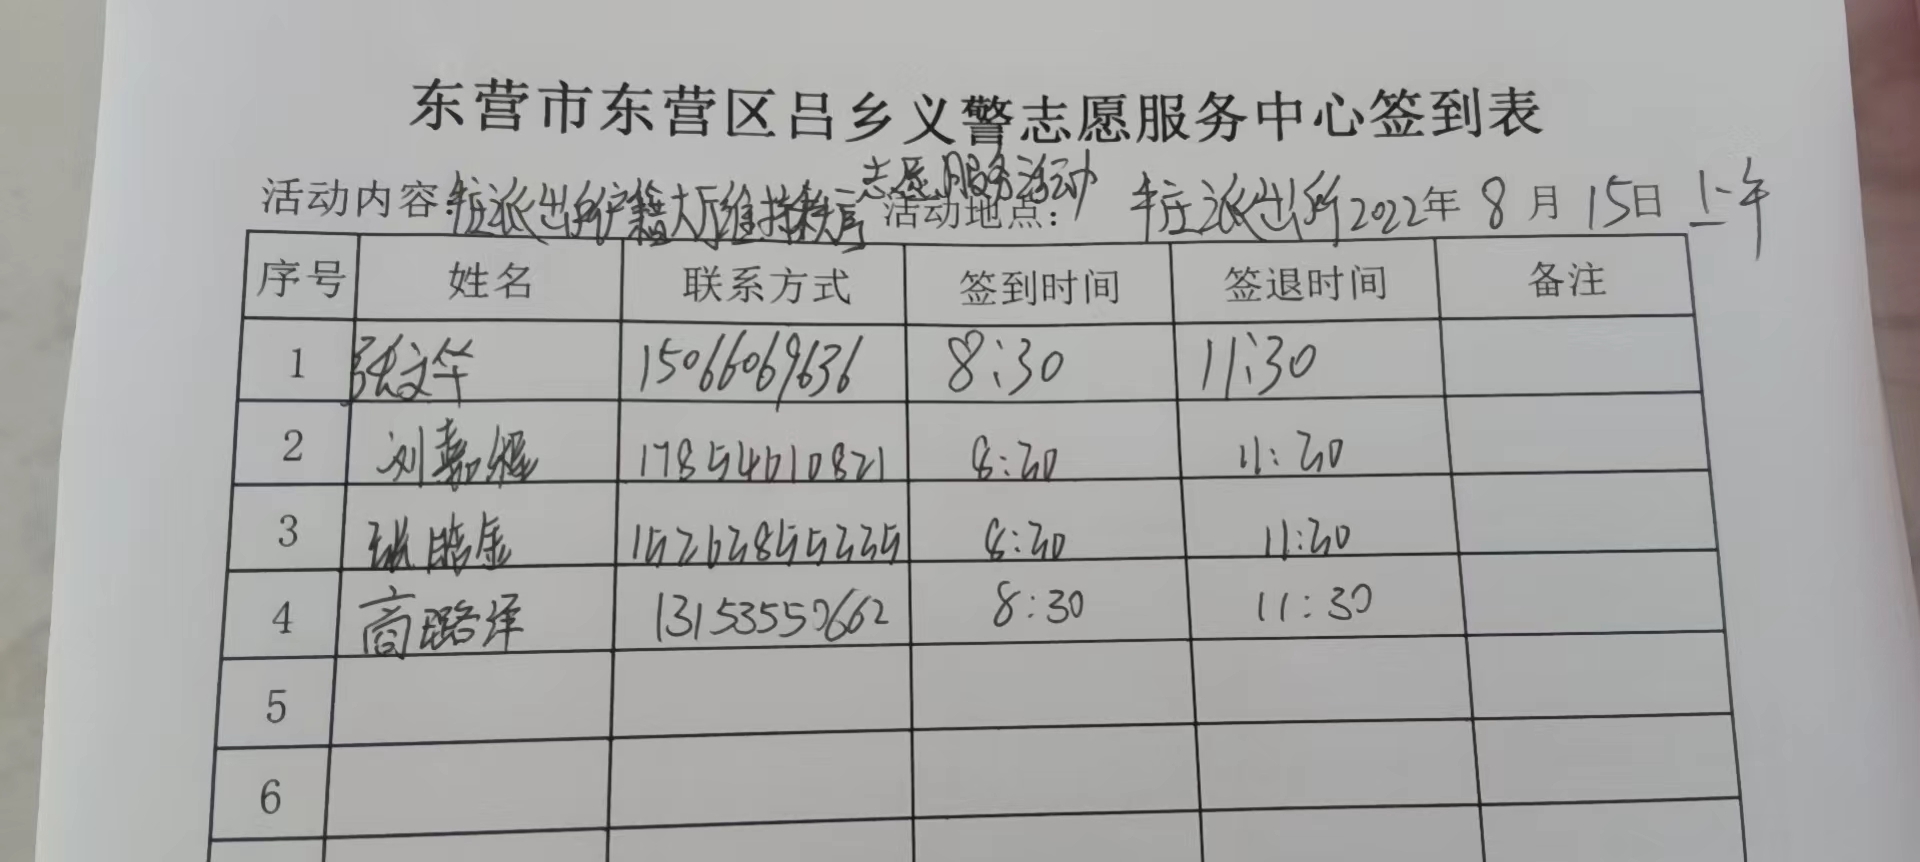 东营市东营区吕乡义警志愿服务中心签到表
志愿服务活动
活动内容：牛庄派出所户籍大厅维持秩序 活动地点： 牛庄派出所 2022年 8 月 15日 上午
序号 姓名 联系方式 签到时间 签退时间 备注
1 张文华 15066069636 8:30 11:30
2 刘嘉 17854610821 8:30 11:30
3 张皓金 15262855225 8:30 11:30
4 商璐洋 13153550662 8:30 11:30
5
6